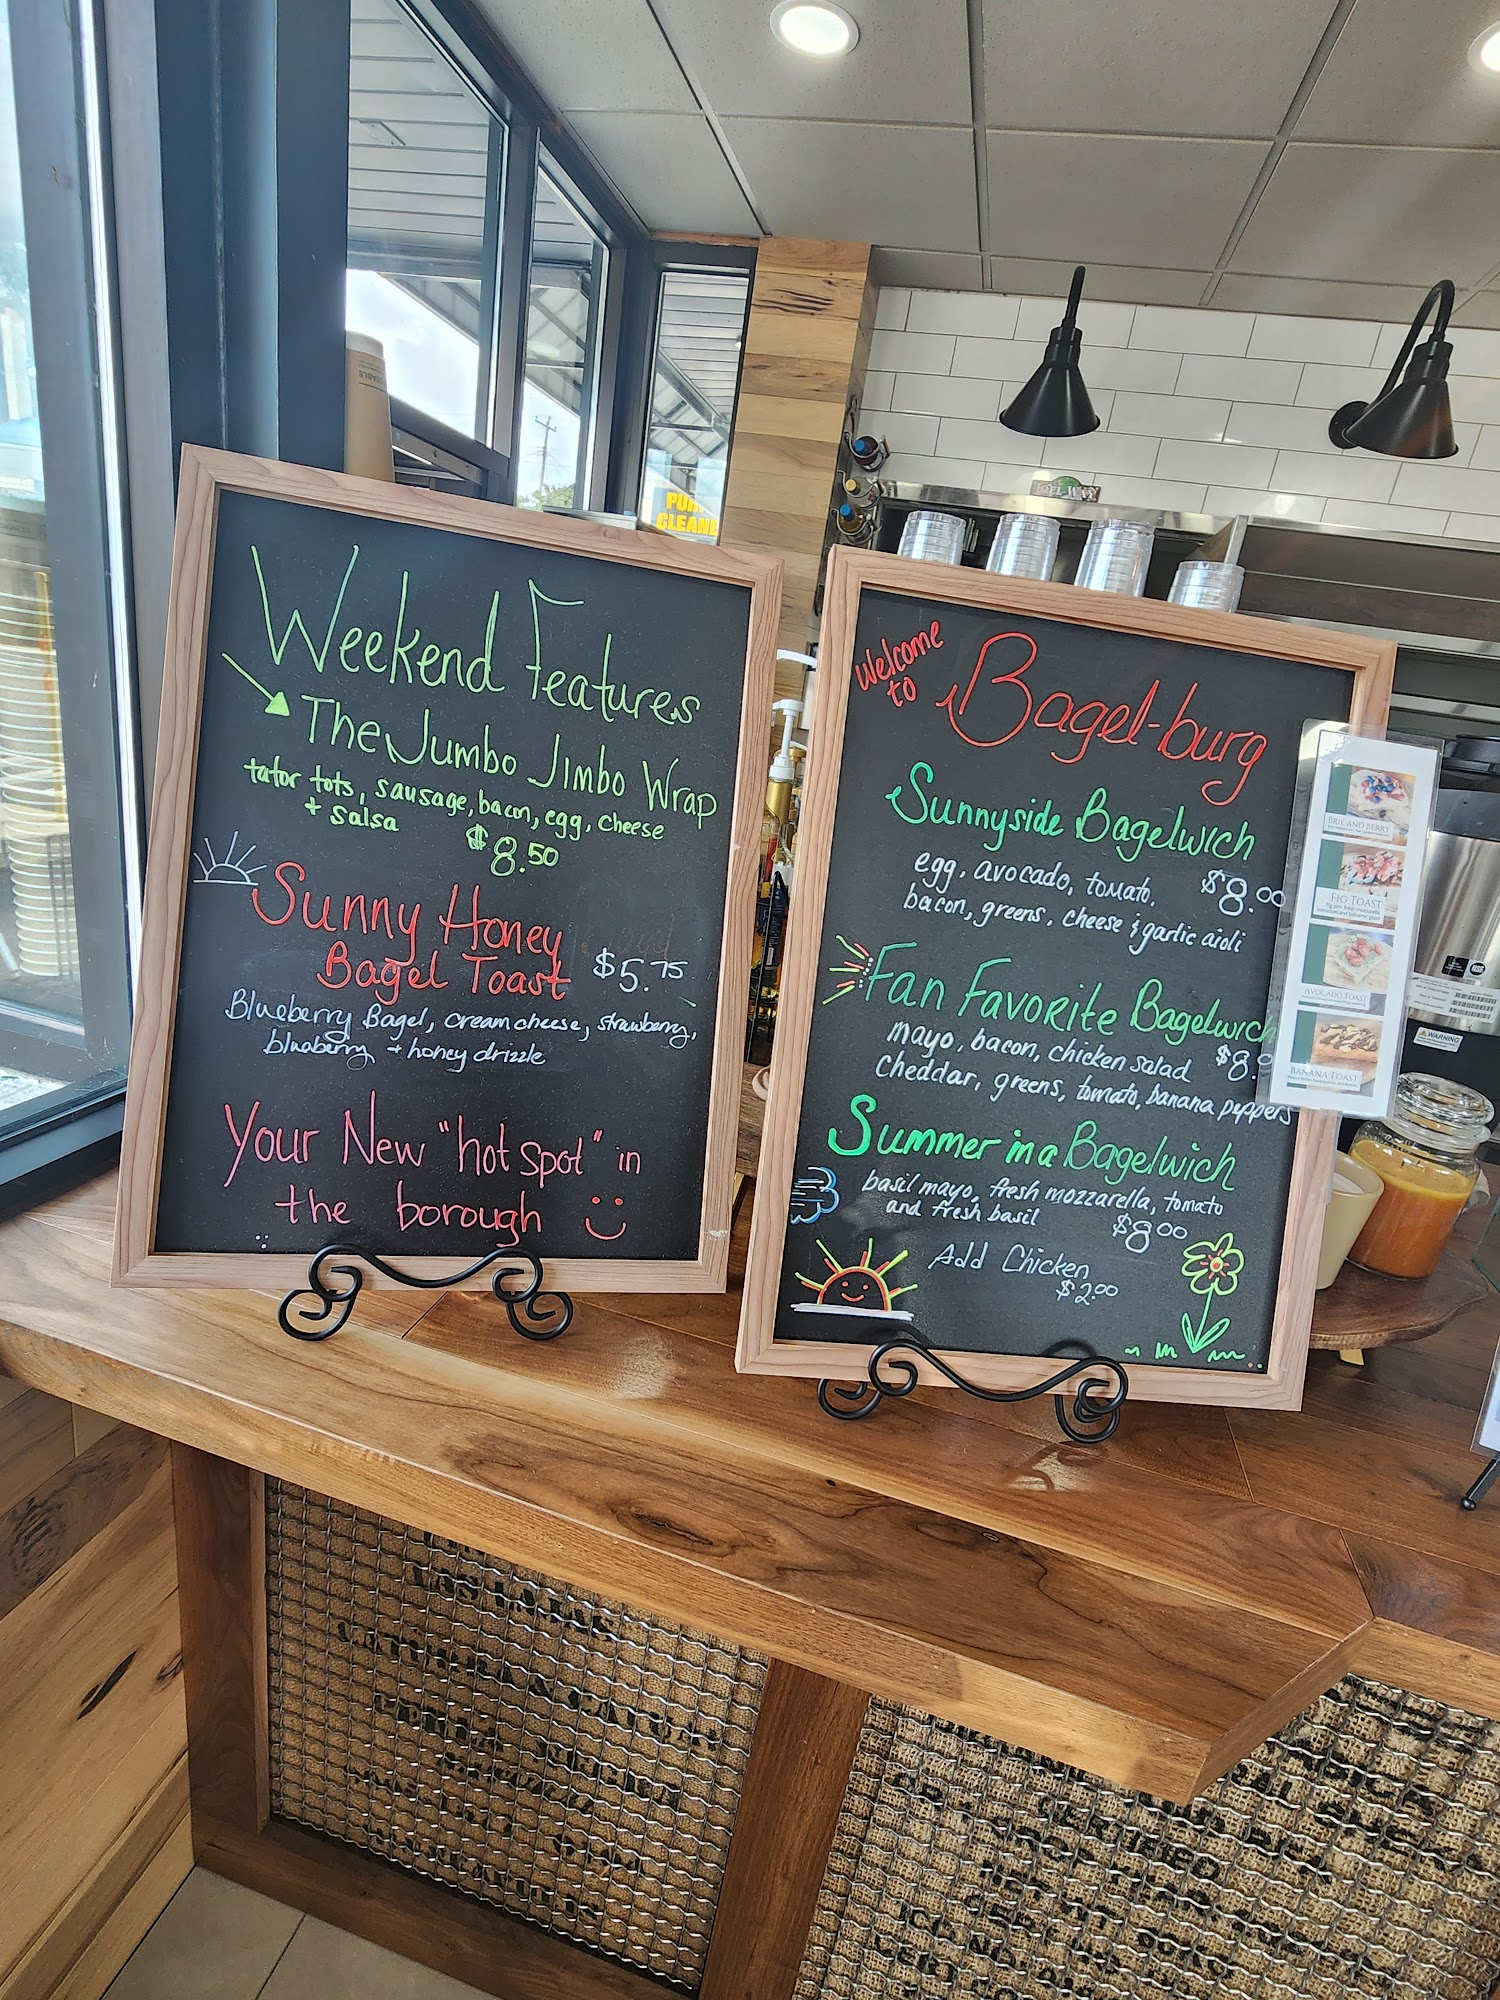 Weekend Features
The Jumbo Jimbo Wrap
tator tots, sausage, bacon, egg, cheese
+ salsa $8.50
Sunny Honey
Bagel Toast $5.75
Blueberry Bagel, cream cheese, strawberry,
blueberry + honey drizzle
Your New "hot spot" in
the borough
Welcome
to
Bagel-burg
Sunnyside Bagelwich
egg, avocado, tomato, $8.00
bacon, greens, cheese & garlic aioli
Fan Favorite Bagelwich
mayo, bacon, chicken salad $8.
Cheddar, greens, tomato, banana peppers
Summer in a Bagelwich
basil mayo, fresh mozzarella, tomato
and fresh basil $8.00
Add Chicken
$2.00
BRIE AND BERRY
FIG TOAST
AVOCADO TOAST
BANANA TOAST
WARNING
CLEANE